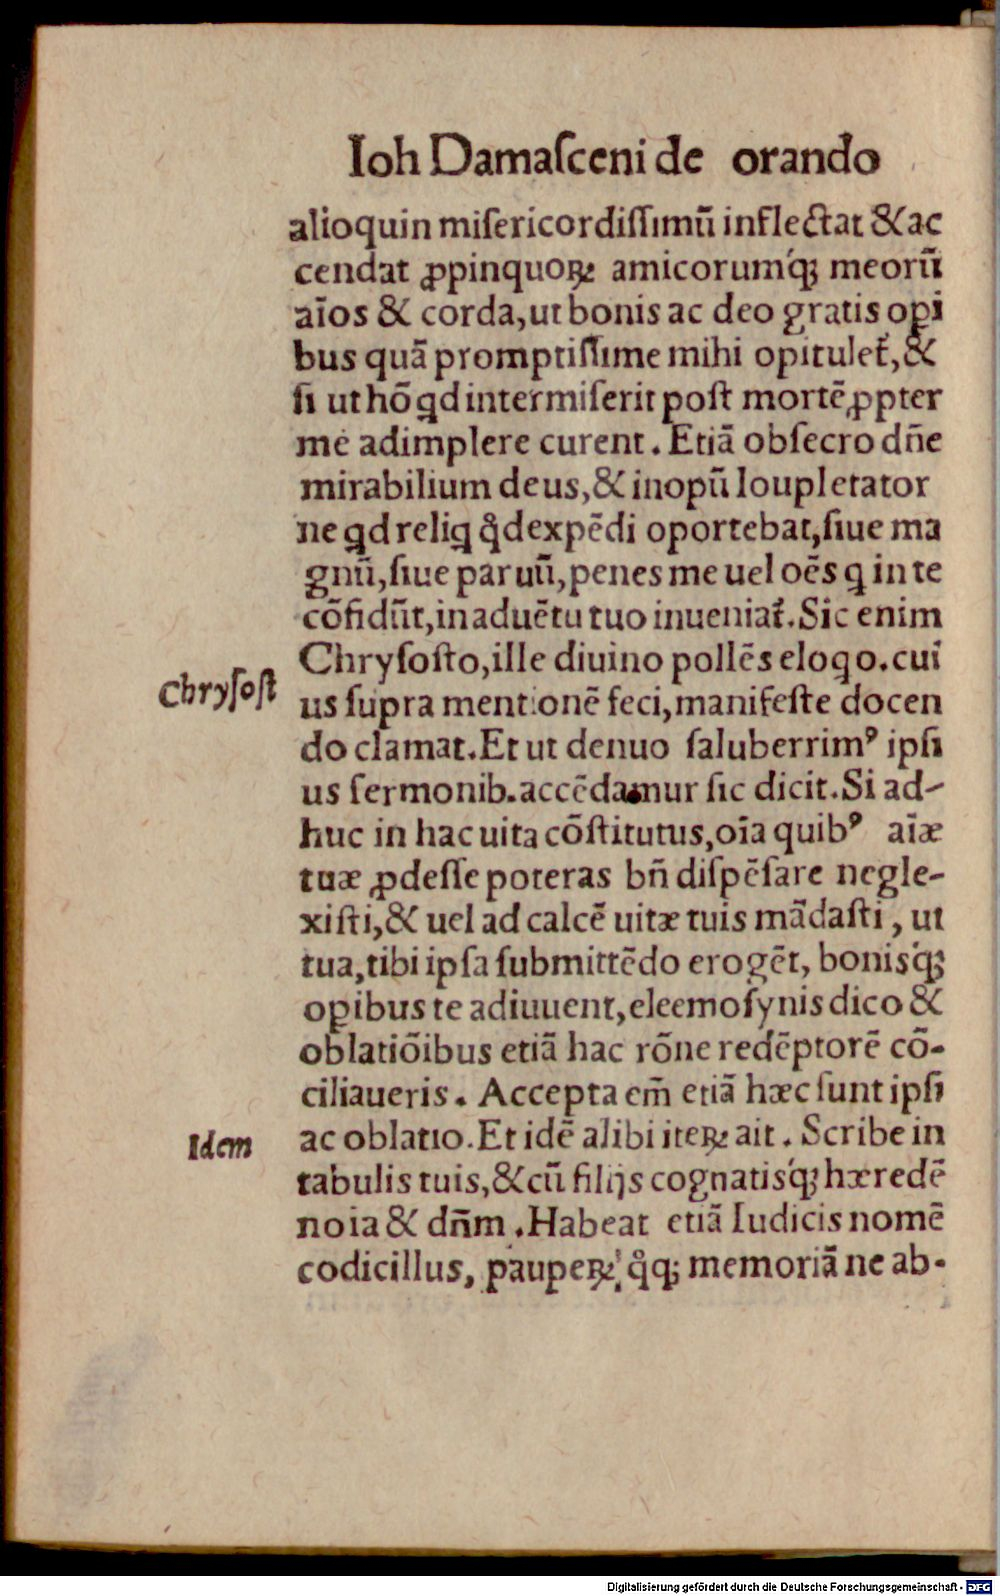 Ioh Damaſceni de orando
alioquin miſericordiſſimũ inflectat & ac
cendat ꝓpinquoꝝ amicorumq́ꝫ meorũ
aīos & corda, ut bonis ac deo gratis opi
bus quã promptiſſime mihi opituleť, &
ſi ut hõ qd intermiſerit poſt mortẽ ꝓpter
me adimplere curent. Etiã obſecro dñe
mirabilium deus, & inopũ loupletator
ne qd reliq q̊d expẽdi oportebat, ſiue ma
gnũ, ſiue paruũ, penes me uel oẽs q in te
cõfidũt, in aduẽtu tuo inueniať. Sic enim
Chryſoſto, ille diuino pollẽs eloqo. cui
Chryſoſt
us ſupra mentionẽ feci, manifeſte docen
do clamat. Et ut denuo ſaluberrimꝰ ipſi
us ſermonib. accẽdamur ſic dicit. Si ad-
huc in hac uita cõſtitutus, oīa quibꝰ aīæ
tuæ ꝓdeſſe poteras bñ diſpẽſare negle-
xiſti, & uel ad calcẽ uitæ tuis mãdaſti, ut
tua, tibi ipſa ſubmittẽdo erogẽt, bonisq́ꝫ
opibus te adiuuent, eleemoſynis dico &
oblatiõibus etiã hac rõne redẽptorẽ cõ-
ciliaueris. Accepta em̃ etiã hæc ſunt ipſi
ac oblatio. Et idẽ alibi iteꝝ ait. Scribe in
Idem
tabulis tuis, & cũ filijs cognatisq́ꝫ hæredẽ
noia & dñm. Habeat etiã Iudicis nomẽ
codicillus, paupeꝝ q̊qꝫ memoriã ne ab-
Digitalisierung gefördert durch die Deutsche Forschungsgemeinschaft - DFG